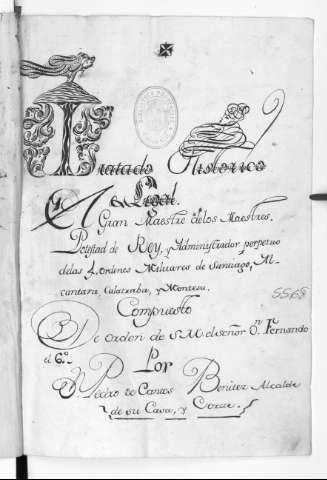 Tratado Historico
Legal.
El Gran Maestre de los Maestres.
Potestad de Rey, y Administrador perpetuo
de las 4 ordines Militares de Santiago, Al
cantara, Calatraba, y Montesa.
Compuesto
De orden de S. M. el señor Dn. Fernando
el 6º.
Por
Dn. Pedro de Cantos Benitez Alcalde
de su Casa, y Corte.